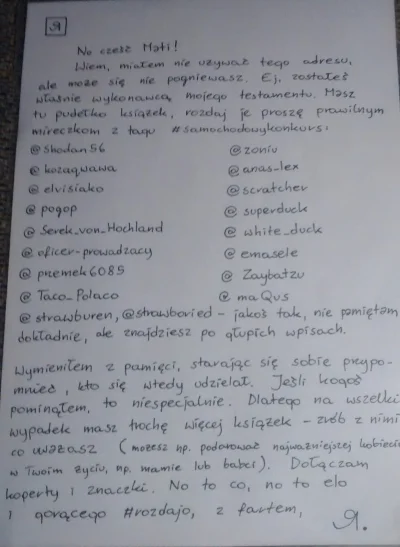 Я
No cześć Mati!
Wiem, miałem nie używać tego adresu,
ale może się nie pogniewasz. Ej, zostałeś
właśnie wykonawcą mojego testamentu. Masz
tu pudełko książek, rozdaj je proszę prawilnym
mireczkom z tagu #samochodowykonkurs:
@Shodan56 @zoniu
@kozaqwawa @anas-lex
@elvisiako @scratcher
@pogop @superduck
@Serek_von_Hochland @white_duck
@oficer-prowadzacy @emasele
@pnemek6085 @Zaybatzu
@Taco_Polaco @maQus
@strawburen, @strawboried – jakoś tak, nie pamiętam
dokładnie, ale znajdziesz po głupich wpisach.
Wymieniłem z pamięci, starając się sobie przypo-
mnieć, kto się wtedy udzielał. Jeśli kogoś
pominąłem, to niespecjalnie. Dlatego na wszelki
wypadek masz trochę więcej książek – zrób z nimi
co uważasz (możesz np. podarować najważniejszej kobiecie
w Twoim życiu, np. mamie lub babci). Dołączam
koperty i znaczki. No to co, no to elo
i gorącego #rozdajo, z fartem,
Я.